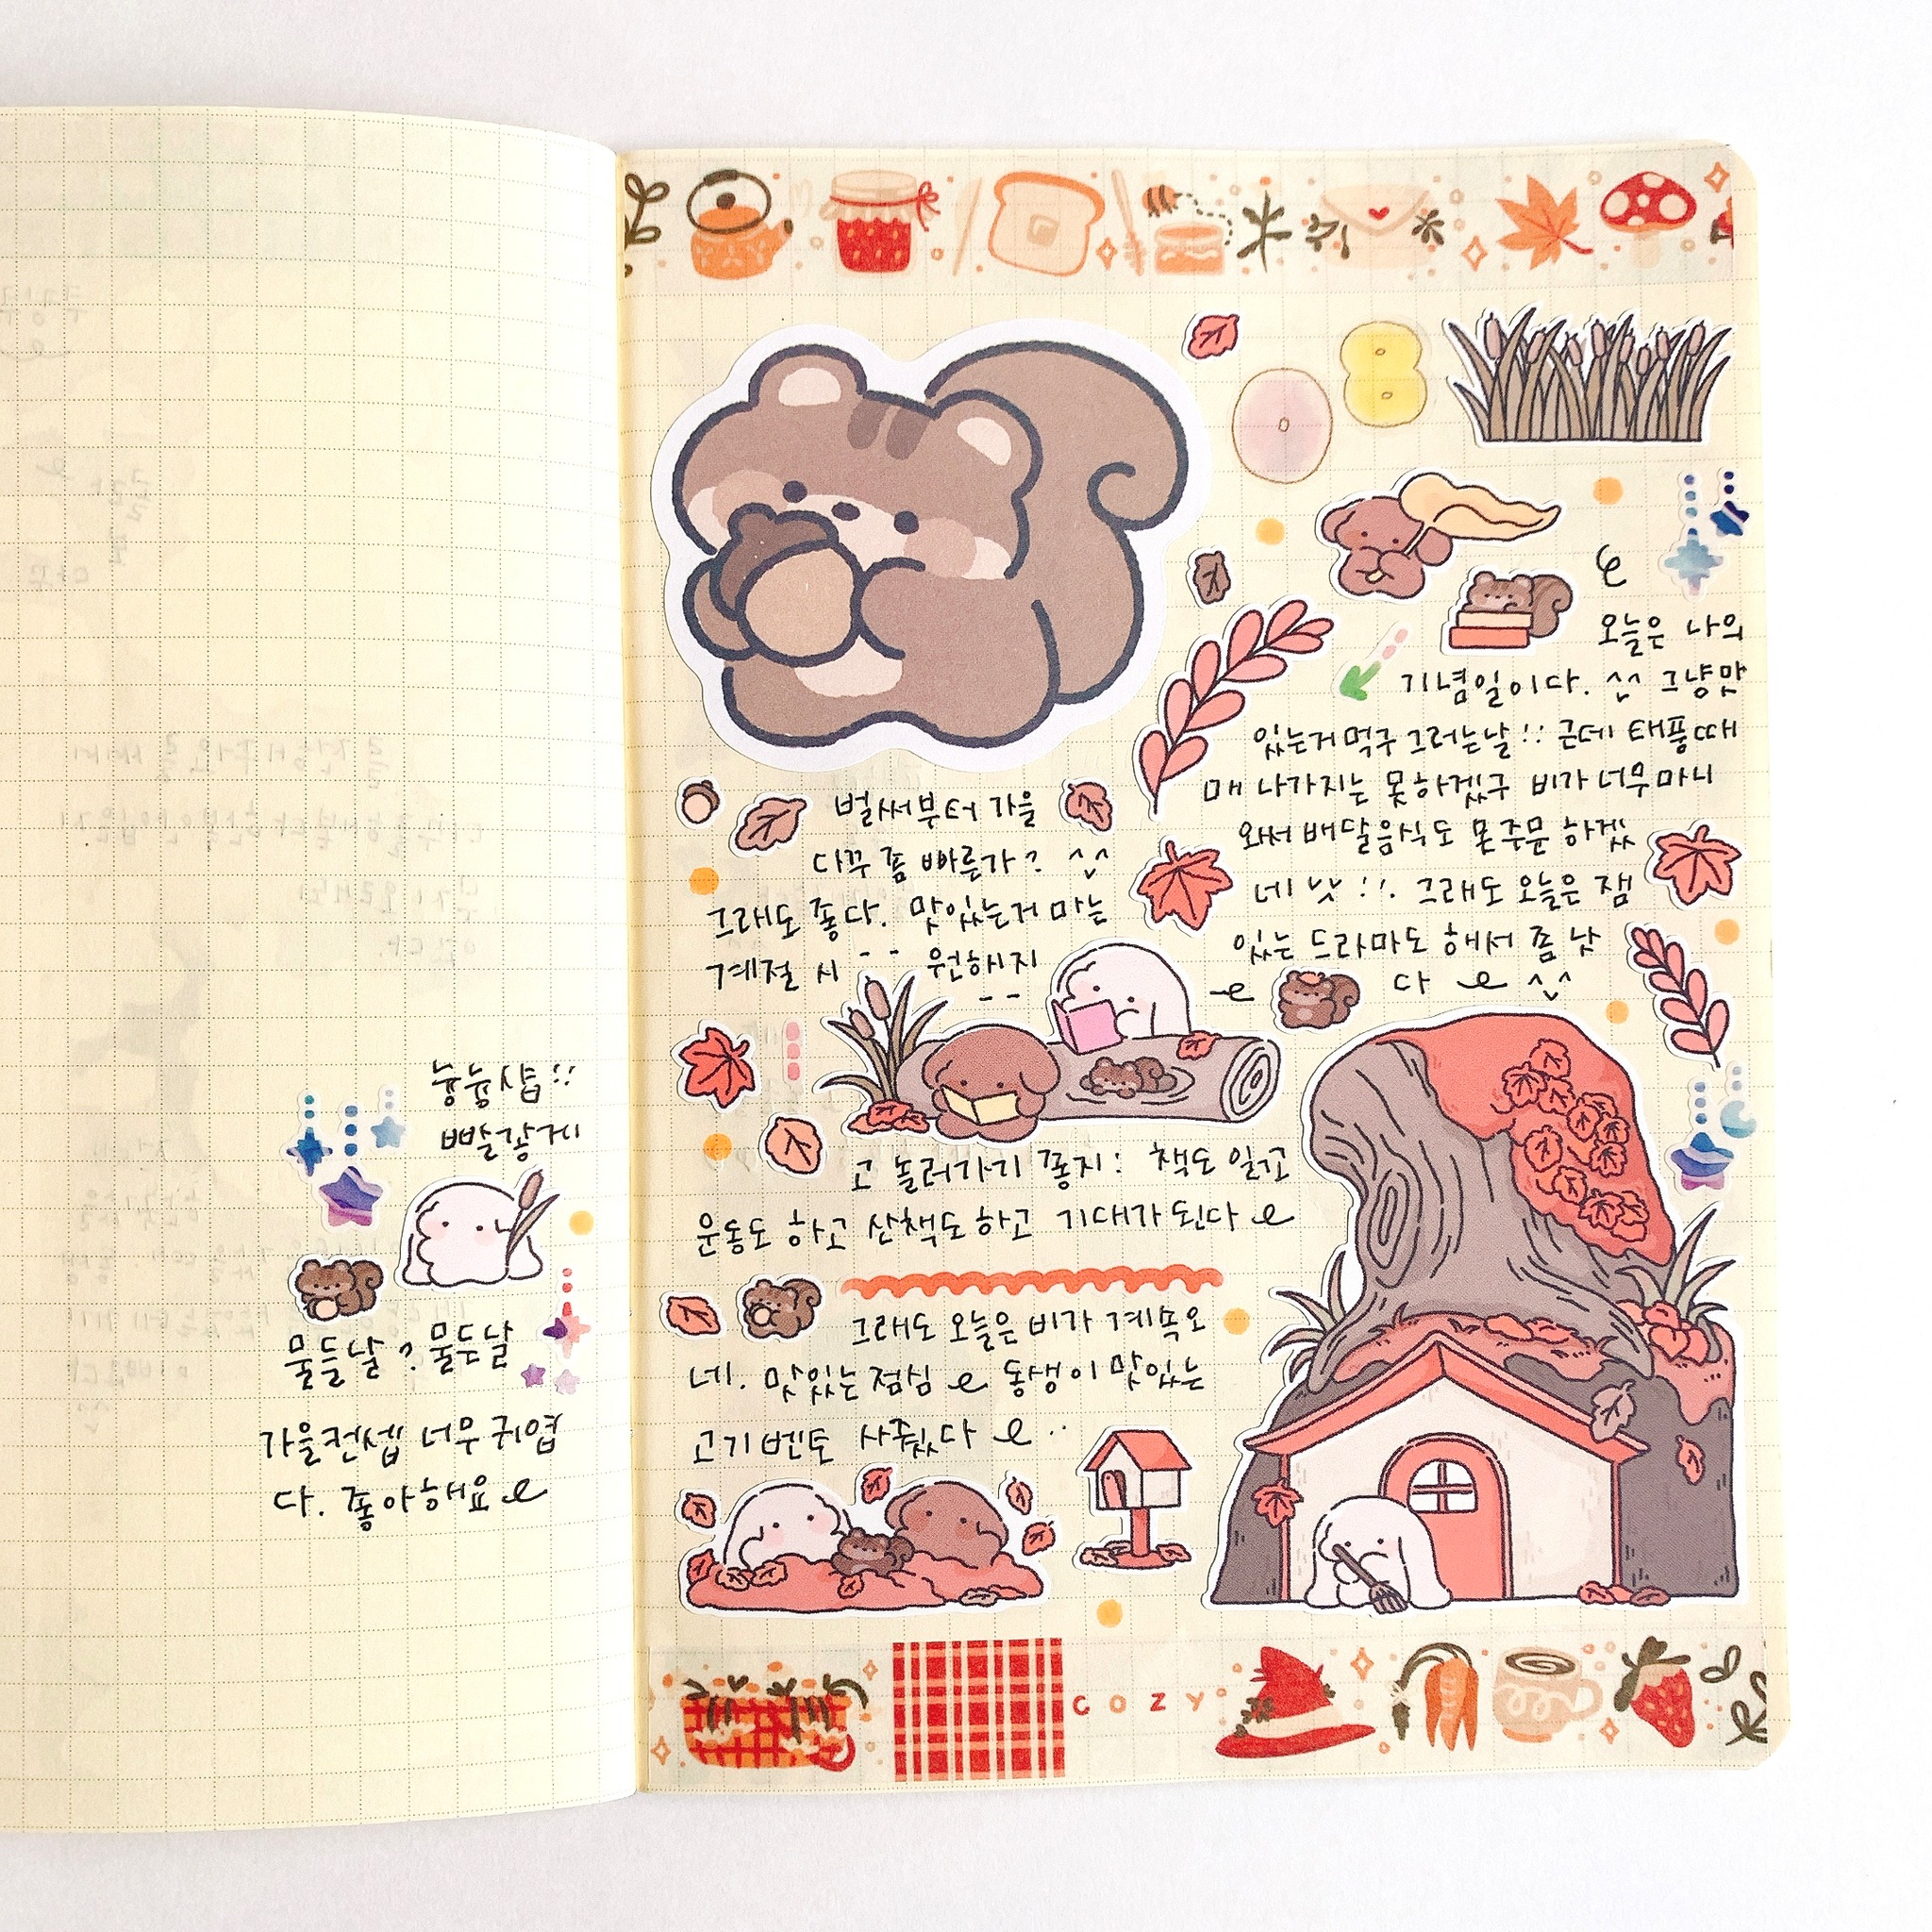 늉늉셥::
빠알갛게
물들날? 물두날
가을컨셉 너무 귀엽
다. 좋아해요
08
오늘은 나의
기념일이다. ^^ 그냥맛
있는거먹구 그러는날:: 근데 태풍때
매 나가지는 못하겠구 비가 너무마니
와서 배달음식도 못주문 하겠
네 낫::. 그래도 오늘은 잼
있는 드라마도 해서 좀 낫
다 ^^
벌써부터 가을
다꾸 좀 빠른가? ^^
그래도 좋다. 맛있는거 마는
계절 시-- 원해지
--
고 놀러가기 좋지: 책도 일고
운동도 하고 산책도하고 기대가된다
그래도 오늘은 비가 계속오
네. 맛있는점심 동생이 맛있는
고기벤토 사줬다 ..
COZY